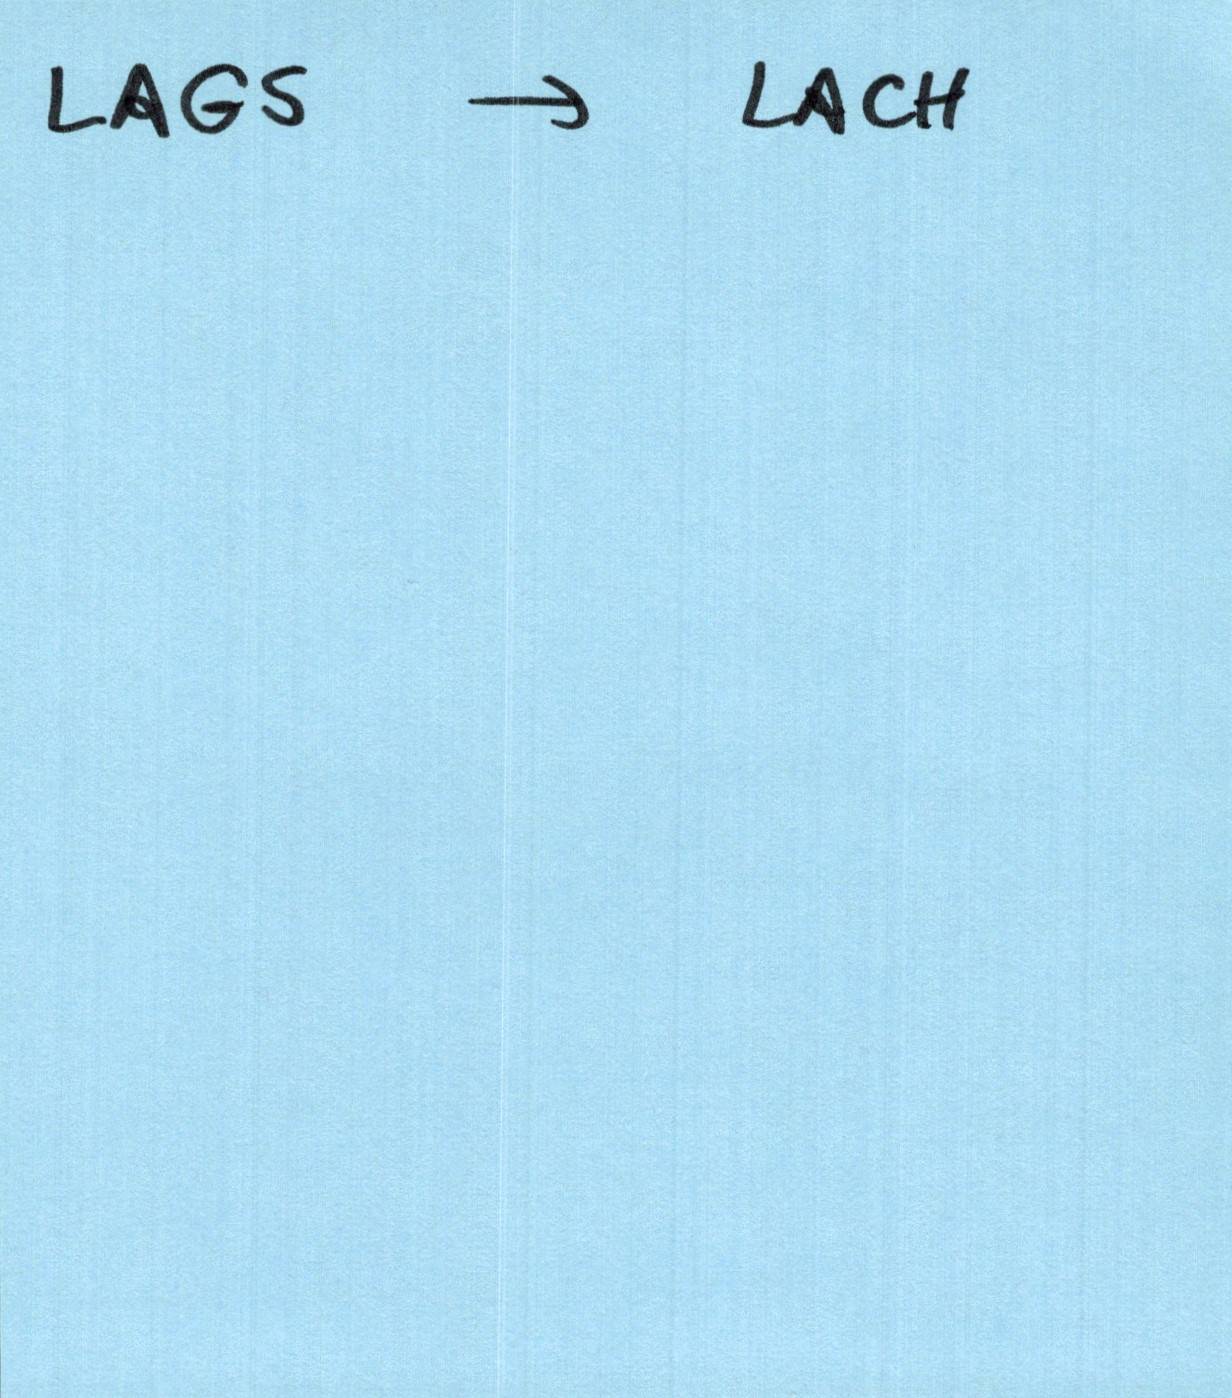 LAGS → LACH